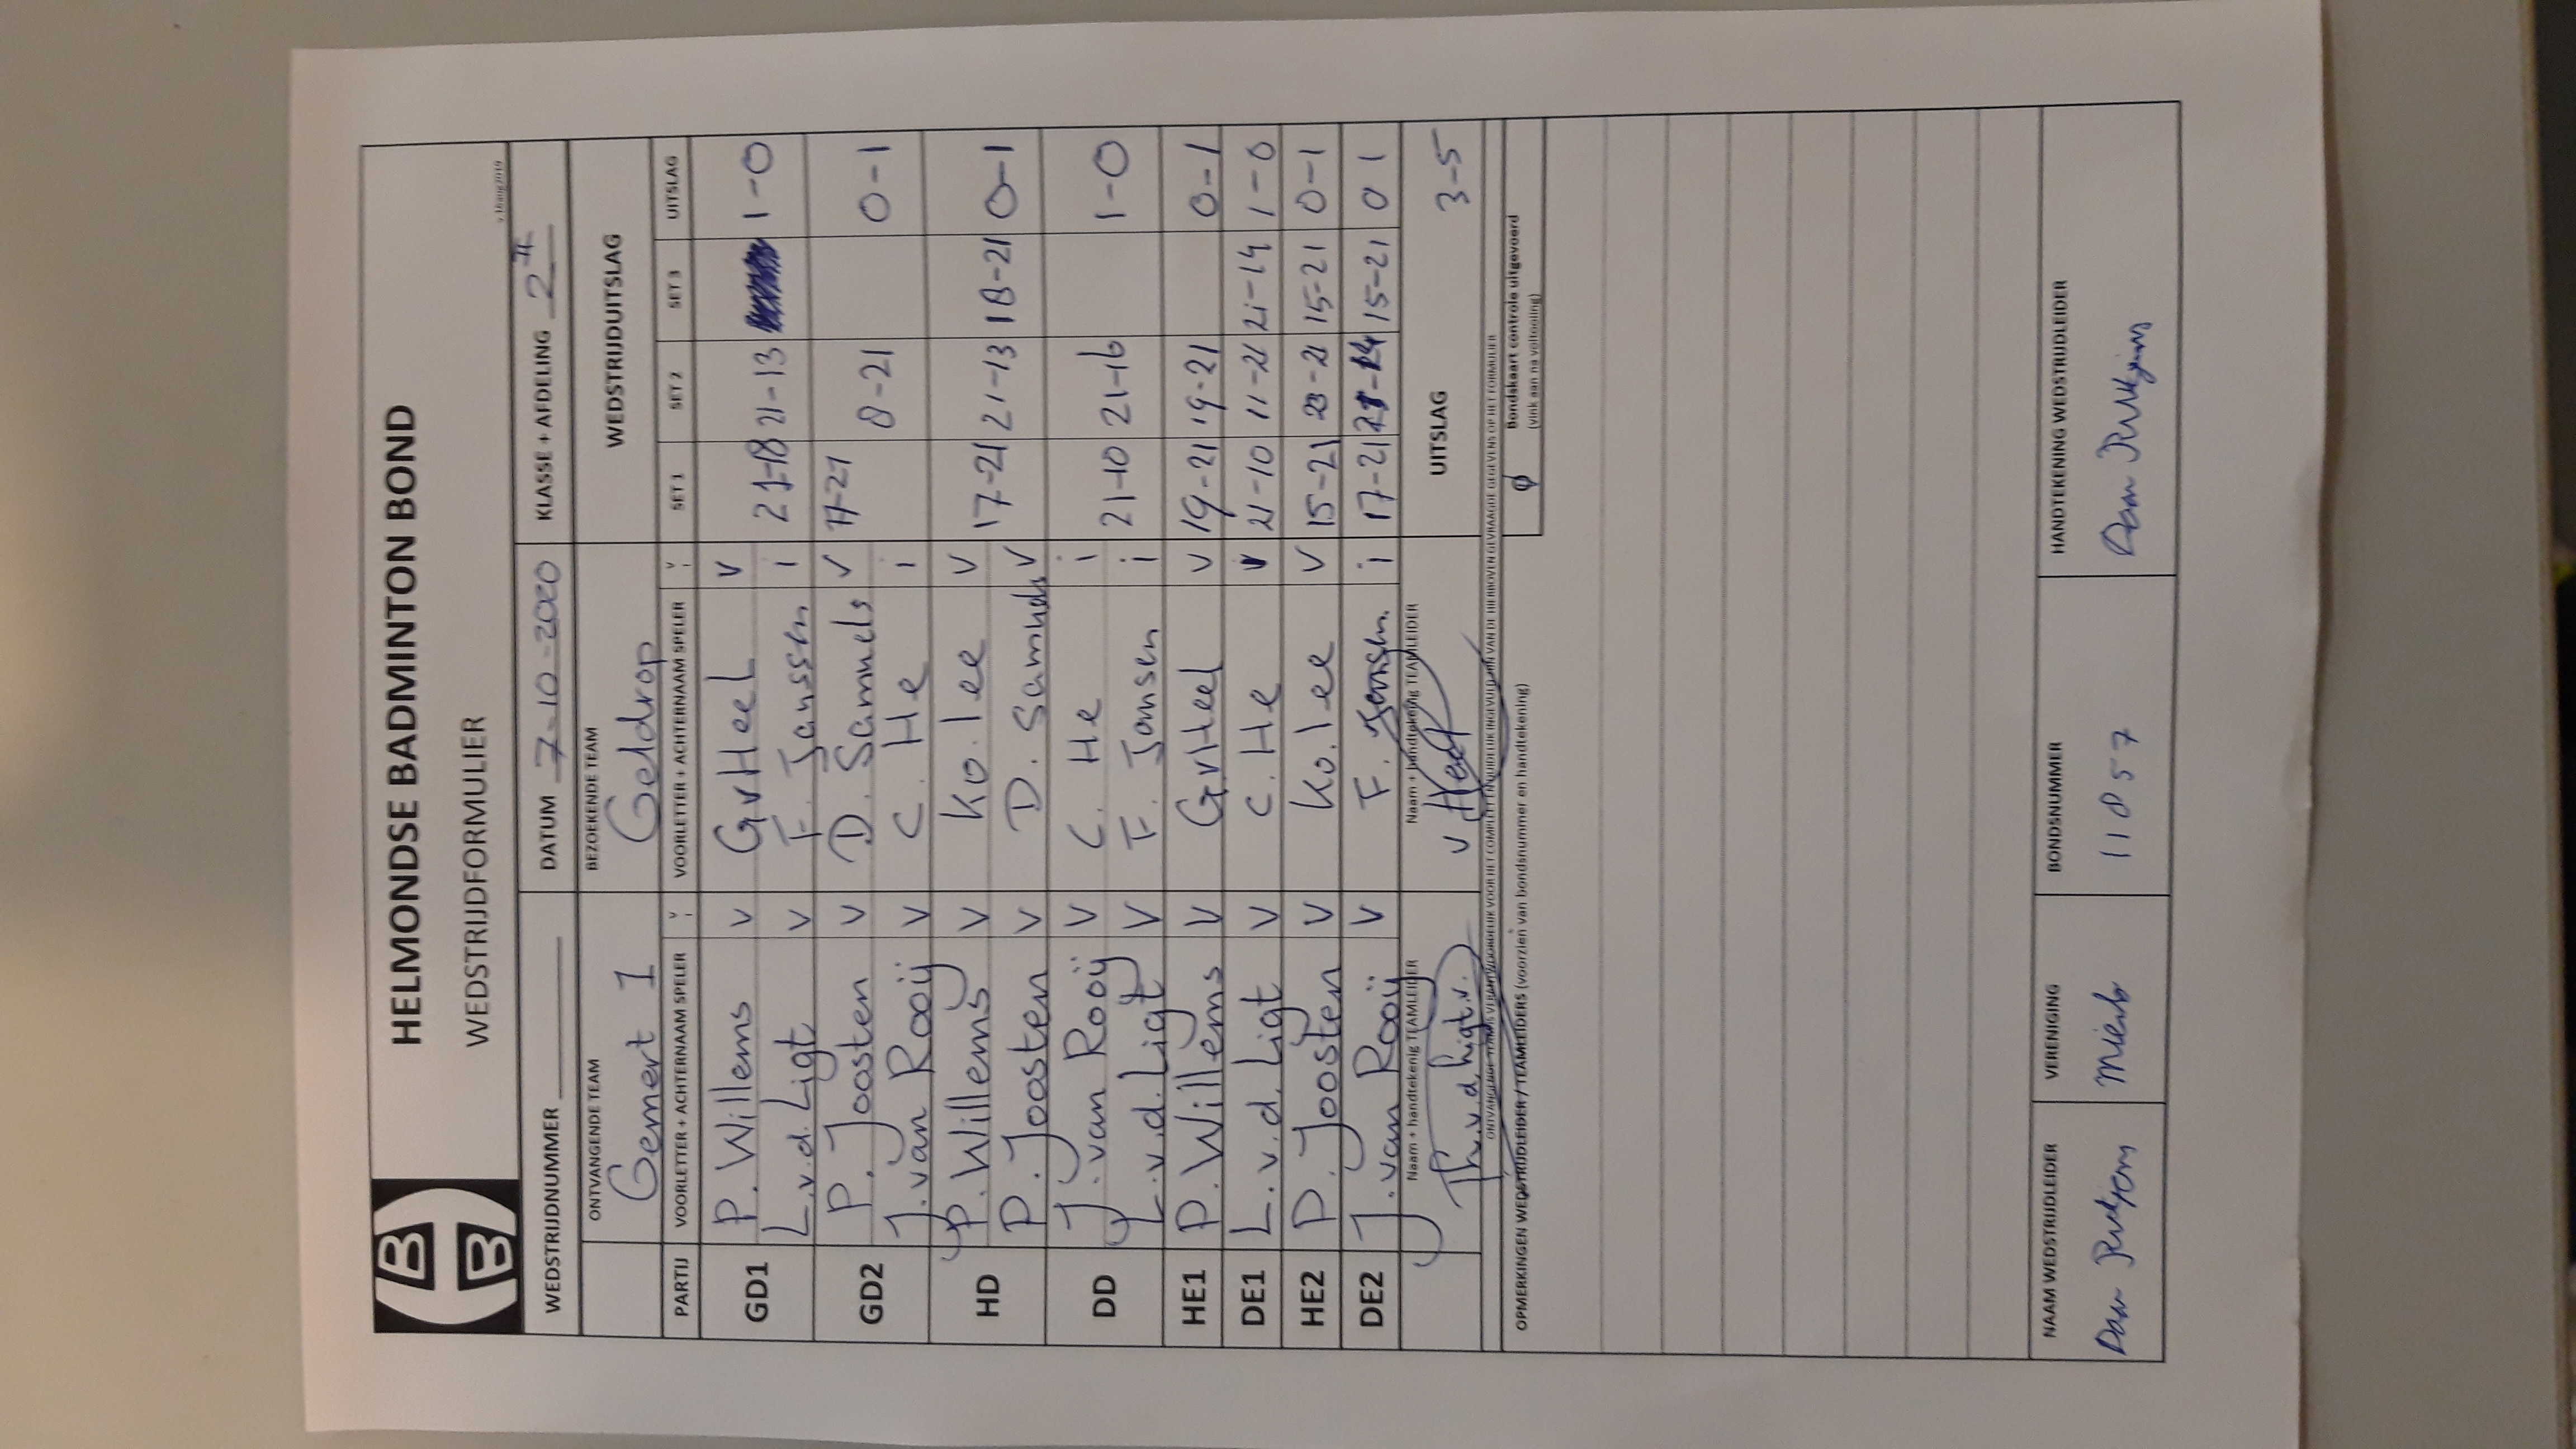 HELMONDSE BADMINTON BOND
WEDSTRIJDFORMULIER
WEDSTRIJDNUMMER DATUM 7-10-2020 KLASSE + AFDELING 2
ONTVANGENDE TEAM BEZOEKENDE TEAM WEDSTRIJDUITSLAG
Gemert 1 Geldrop
PARTIJ VOORLETTER + ACHTERNAAM SPELER V I VOORLETTER + ACHTERNAAM SPELER V I SET 1 SET 2 SET 3 UITSLAG
GD1 P. Willems V GvHeel V 21-18 21-13 1-0
L.v.d. Ligt V F. Janssen i
GD2 P. Joosten V D. Samuels V 17-21 8-21 0-1
J. van Rooij V C. He i
HD P. Willems V Ko. lee V 17-21 21-13 18-21 0-1
P. Joosten V D. Samuels V
DD J. van Rooij V C. He i 21-10 21-16 1-0
L.v.d. Ligt V F. Jansen i
HE1 P. Willems V GvHeel V 19-21 19-21 0-1
DE1 L.v.d. Ligt V C. He 21-10 11-21 21-14 1-0
HE2 P. Joosten V Ko. lee V 15-21 23-21 15-21 0-1
DE2 J. van Rooij V F. Jansen i 17-21 15-21 0 1
Naam + handtekenig TEAMLEIDER Naam + handtekenig TEAMLEIDER UITSLAG 3-5
Th.v.d. Ligt v. v Heel
OPMERKINGEN WEDSTRIJDLEIDER / TEAMLEIDERS (voorzien van bondsnummer en handtekening)
Bondskaart controle uitgevoerd
(vink aan na voltooiing)
NAAM WEDSTRIJDLEIDER VERENIGING BONDSNUMMER HANDTEKENING WEDSTRIJDLEIDER
Mierlo 11857